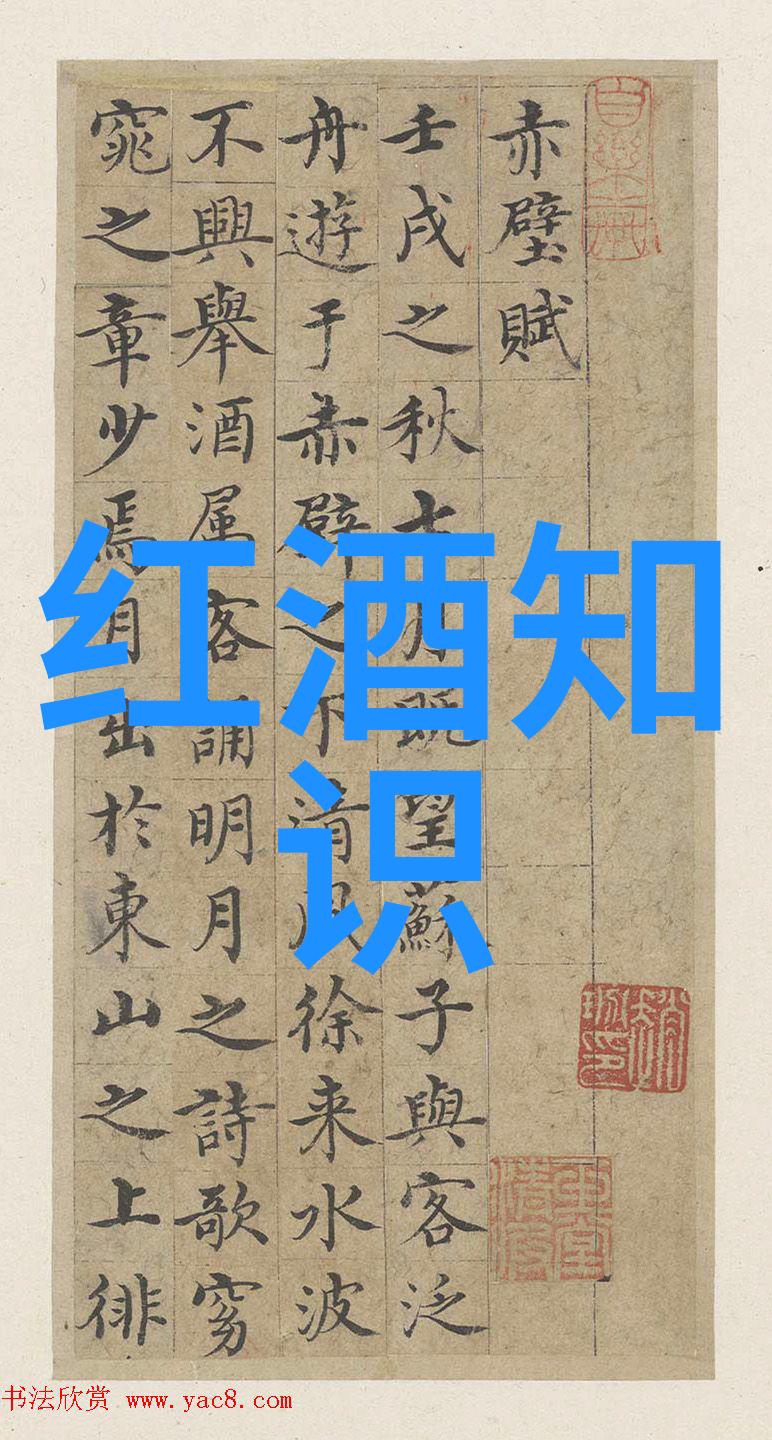 赤壁賦
壬戌之秋七月既望蘇子與客泛
舟遊于赤壁之下清風徐来水波
不興舉酒属客誦明月之詩歌窈
窕之章少焉月出於東山之上徘
红酒知
识
书法欣赏 www.yac8.com